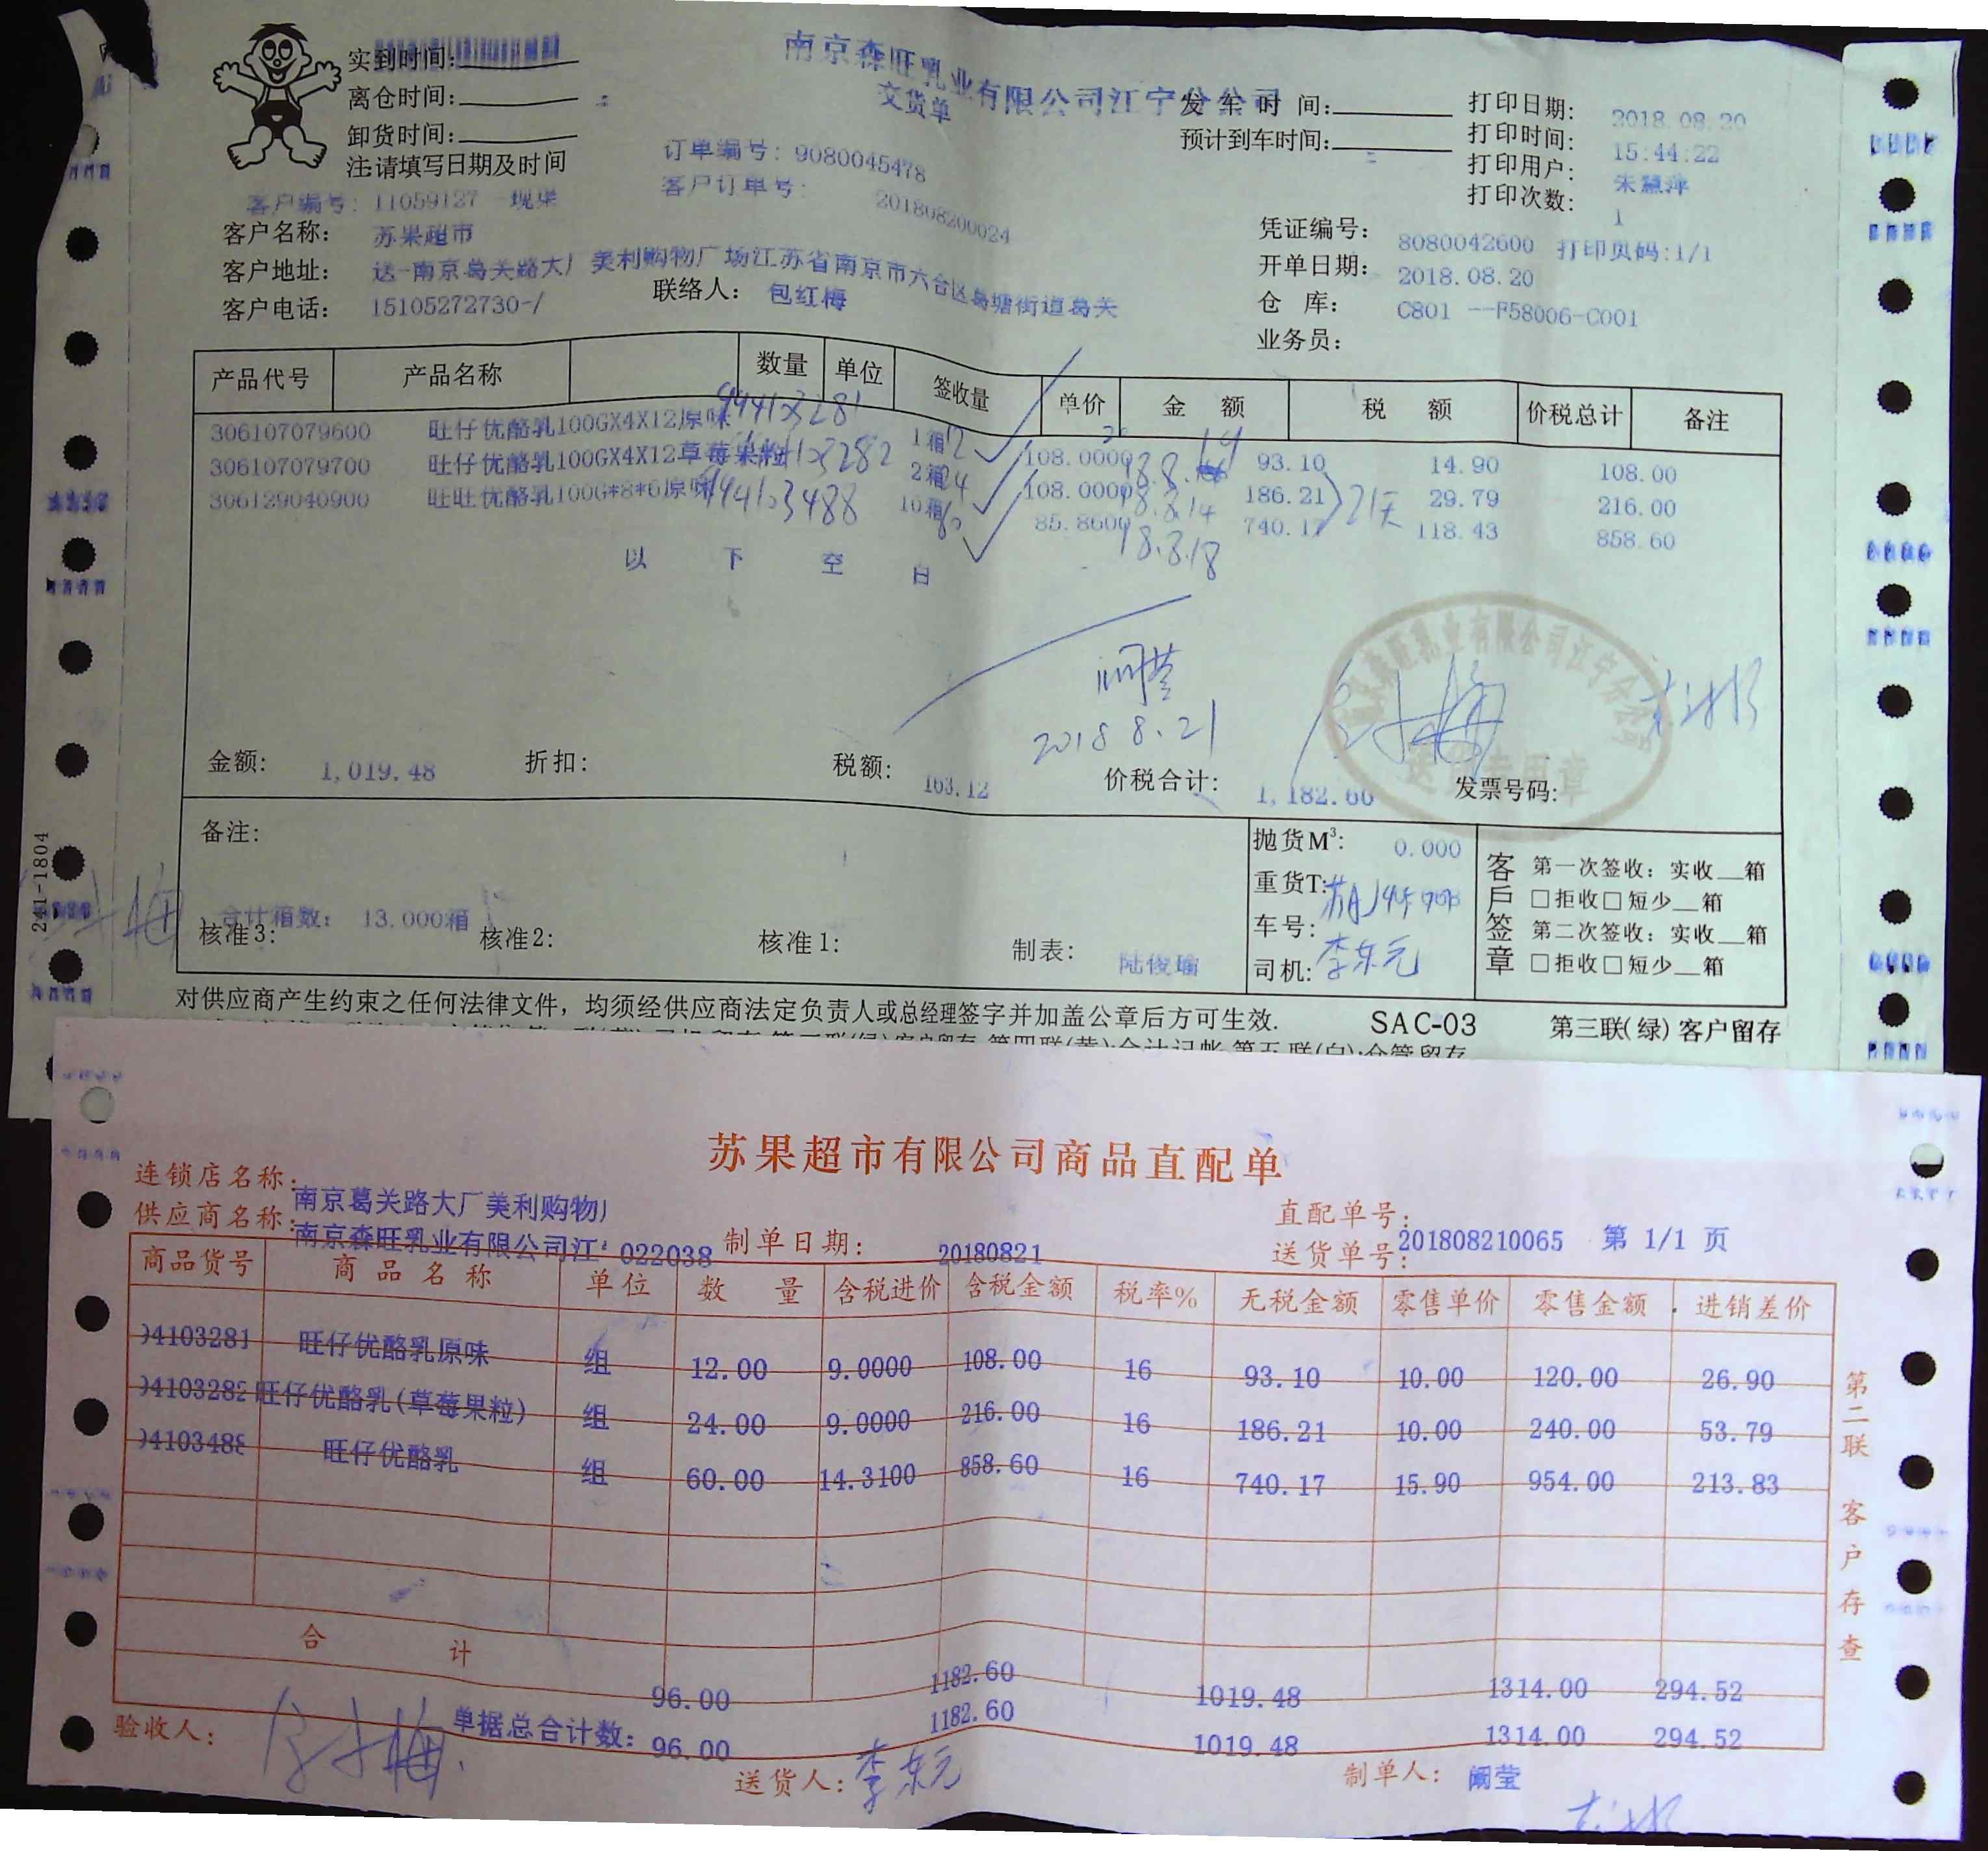 南京森旺乳业有限公司江宁分公司
交货单
实到时间:
离仓时间:
卸货时间:
注:请填写日期及时间
发车时间:
预计到车时间:
打印日期: 2018.08.20
打印时间: 15:44:22
打印用户: 朱慧萍
打印次数: 1
订单编号: 9080045478
客户订单号: 201808200024
客户编号: 11059127
客户名称: 苏果超市
客户地址: 送-南京葛关路大厂美利购物广场江苏省南京市六合区葛塘街道葛关
客户电话: 15105272730-/
联络人: 包红梅
凭证编号: 8080042600 打印页码:1/1
开单日期: 2018.08.20
仓 库: C801 --F58006-C001
业务员:
产品代号 产品名称 数量 单位 签收量 单价 金 额 税 额 价税总计 备注
306107079600 旺仔优酪乳100GX4X12原味 1箱 12 108.0000 93.10 14.90 108.00
306107079700 旺仔优酪乳100GX4X12草莓果粒 2箱 24 108.0000 18.8.14 186.21 29.79 216.00
306129040900 旺旺优酪乳100G*8*6原味 10箱 60 85.8600 18.8.18 740.17 118.43 858.60
21天
以 下 空 白
阚莹
2018 8.21
金额: 1,019.48 折扣: 税额: 163.12 价税合计: 1,182.60 发票号码:
备注:
合计箱数: 13.000箱
核准3: 核准2: 核准1: 制表: 陆俊瑜
抛货M³: 0.000
重货T:
车号:
司机: 李东元
客户签章
第一次签收: 实收__箱
□拒收□短少__箱
第二次签收: 实收__箱
□拒收□短少__箱
对供应商产生约束之任何法律文件，均须经供应商法定负责人或总经理签字并加盖公章后方可生效.
SAC-03 第三联(绿)客户留存
241-1804
苏果超市有限公司商品直配单
连锁店名称: 南京葛关路大厂美利购物
供应商名称: 南京森旺乳业有限公司江 022038
制单日期: 20180821
直配单号: 201808210065 第 1/1 页
送货单号:
商品货号 商品名称 单位 数 量 含税进价 含税金额 税率% 无税金额 零售单价 零售金额 进销差价
94103281 旺仔优酪乳原味 组 12.00 9.0000 108.00 16 93.10 10.00 120.00 26.90
94103282 旺仔优酪乳(草莓果粒) 组 24.00 9.0000 216.00 16 186.21 10.00 240.00 53.79
94103488 旺仔优酪乳 组 60.00 14.3100 858.60 16 740.17 15.90 954.00 213.83
合 计 96.00 1182.60 1019.48 1314.00 294.52
单据总合计数: 96.00 1182.60 1019.48 1314.00 294.52
验收人: 送货人: 李东元 制单人: 阚莹
第二联 客户存查